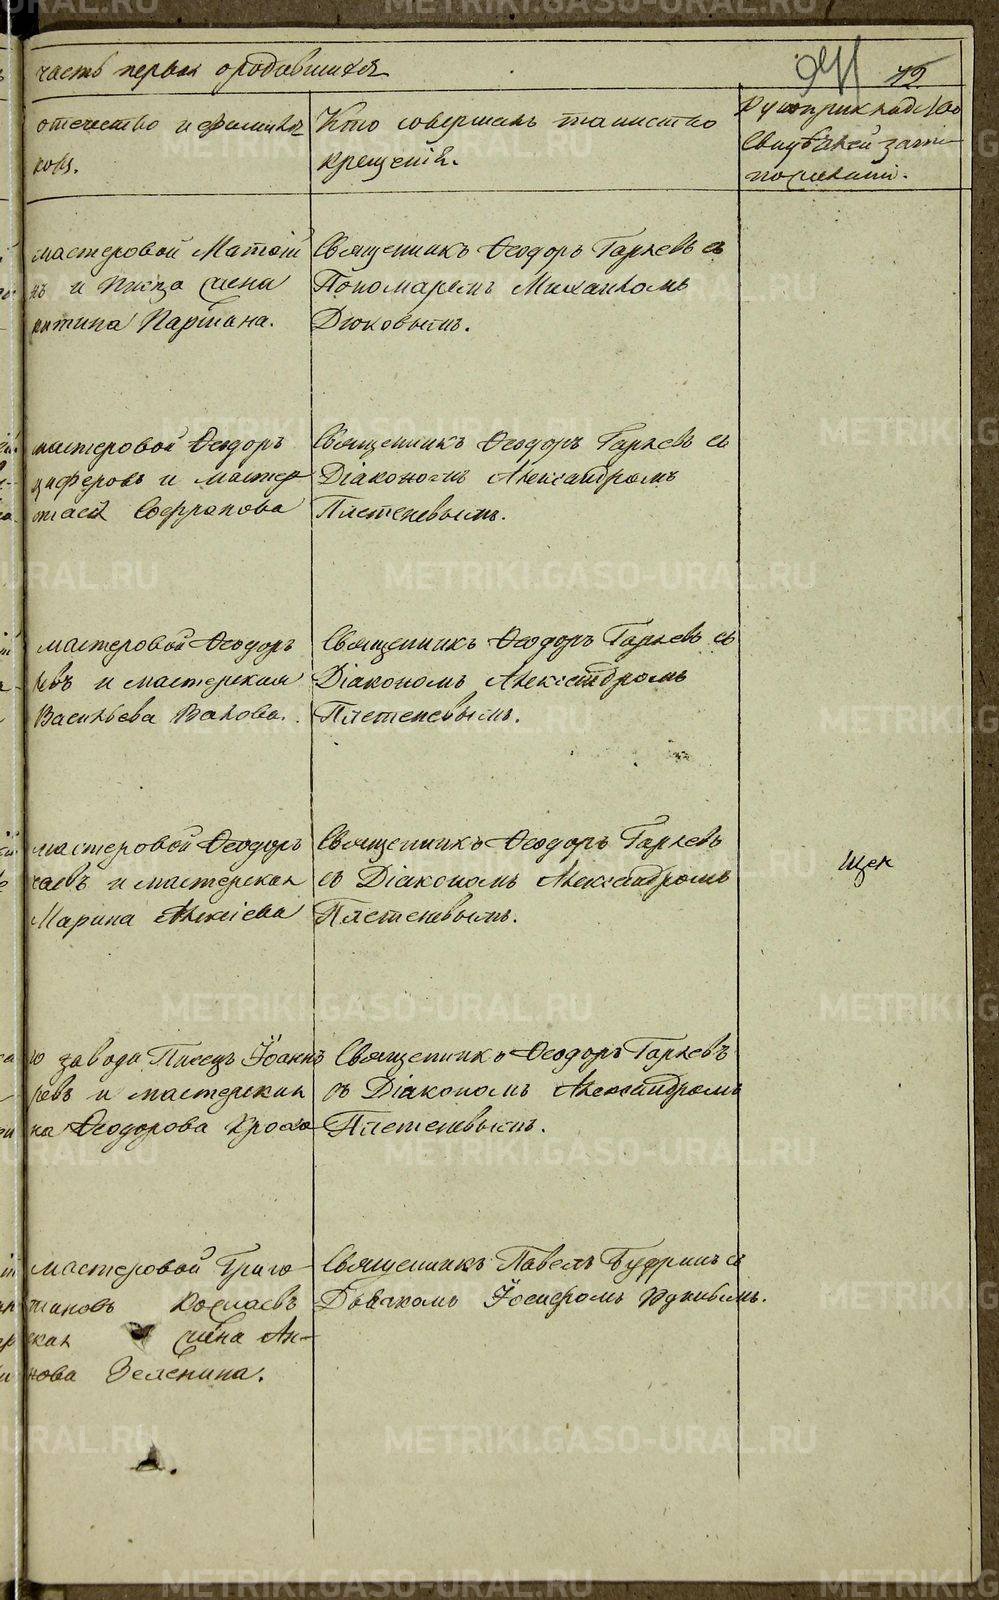 часть первая о родившихся
75
отечество и фамилія
Кто совершалъ таинство
крещенія.
Рукоприкладство
свидѣтелей
мастеровой
и Писца жена
Паршина.
Священникъ Ѳеодоръ Гаряевъ съ
Пономаремъ Михаиломъ
Дюковымъ.
мастеровой Ѳеодоръ
и мастер
Софронова
Священникъ Ѳеодоръ Гаряевъ съ
Діакономъ Александромъ
Плетеневымъ.
мастеровой Ѳеодоръ
евъ и мастерская
Васильева Вахова.
Священникъ Ѳеодоръ Гаряевъ съ
Діакономъ Александромъ
Плетеневымъ.
мастеровой Ѳеодоръ
и мастерская
Марина Алексіева
Священникъ Ѳеодоръ Гаряевъ
съ Діакономъ Александромъ
Плетеневымъ.
го завода Писецъ Іоаннъ
ревъ и мастерская
на Ѳеодорова
Священникъ Ѳеодоръ Гаряевъ
съ Діакономъ Александромъ
Плетеневымъ.
мастеровой Григо
тиновъ
ская жена Ан-
нова Зеленина.
Священникъ Павелъ Будринъ съ
Дьячкомъ Іосифомъ
METRIKI.GASO-URAL.RU